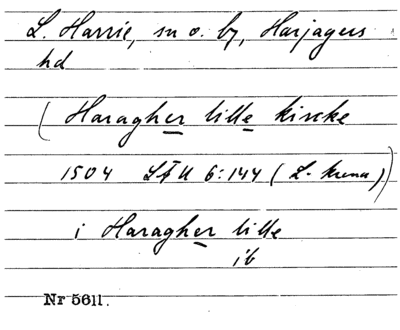 L. Harrie, sn o. by, Harjagers
hd
(Haragher lille kircke
1504 LÄU 6:144 (L. krma))
i Haragher lille
ib
Nr 5611.